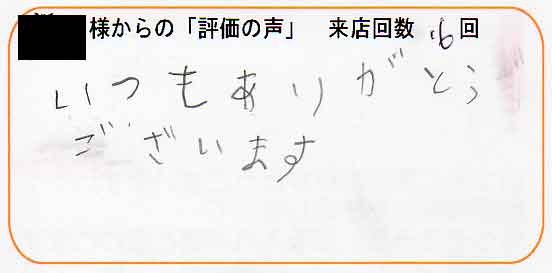 様からの「評価の声」 来店回数 16回
いつもありがとう
ございます